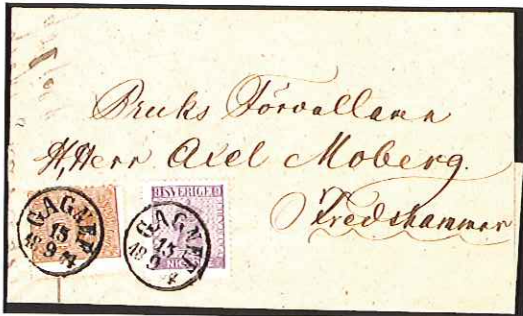 Bruks Förvaltaren
H, Herr Axel Moberg.
Fredshammar
GAGNEF
15
9
18 74
SVERIGE
GAGNEF
15
9
18 74